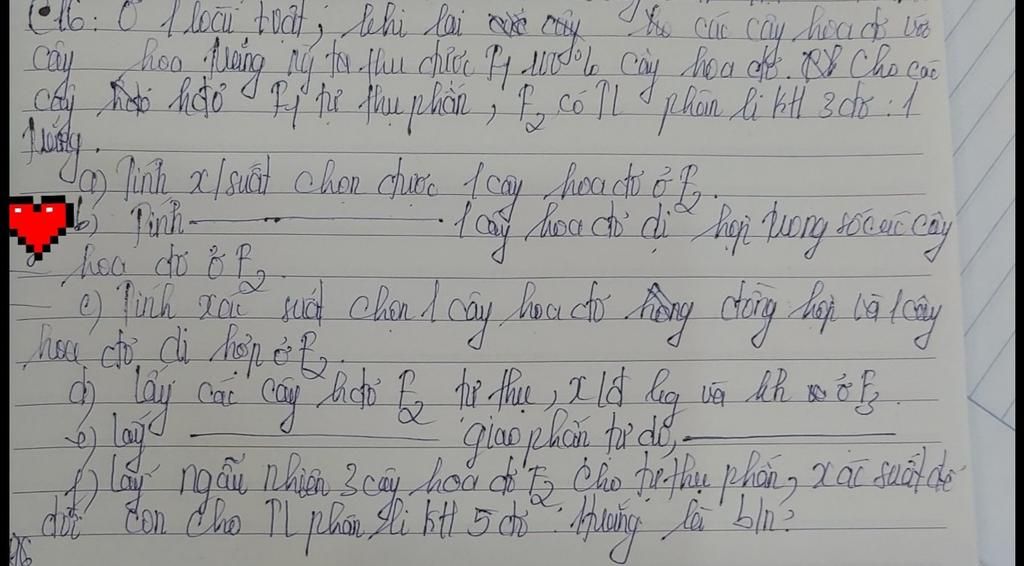 16: Ở 1 loài tvật, khi lai cây các cây hoa đỏ với
cây hoa trắng ng ta thu được F1 100% cây hoa đỏ. Cho các
cây hđỏ F1 tự thụ phấn, F2 có TL phân li KH 3 đỏ : 1
trắng.
a) Tính x/suất chọn được 1 cây hoa đỏ ở F2.
b) Tính ——— 1 cây hoa đỏ dị hợp trong số các cây
hoa đỏ ở F2.
c) Tính xác suất chọn 1 cây hoa đỏ đồng hợp và 1 cây
hoa đỏ dị hợp ở F2.
d) lấy các cây hđỏ F2 tự thụ, x/đ kg và kh ở F3.
e) lấy ——— giao phấn tự do, ———
f) lấy ngẫu nhiên 3 cây hoa đỏ F2 cho tự thụ phấn, xác suất để
đời con cho TL phân li KH 5 đỏ : 1 trắng là b/n?